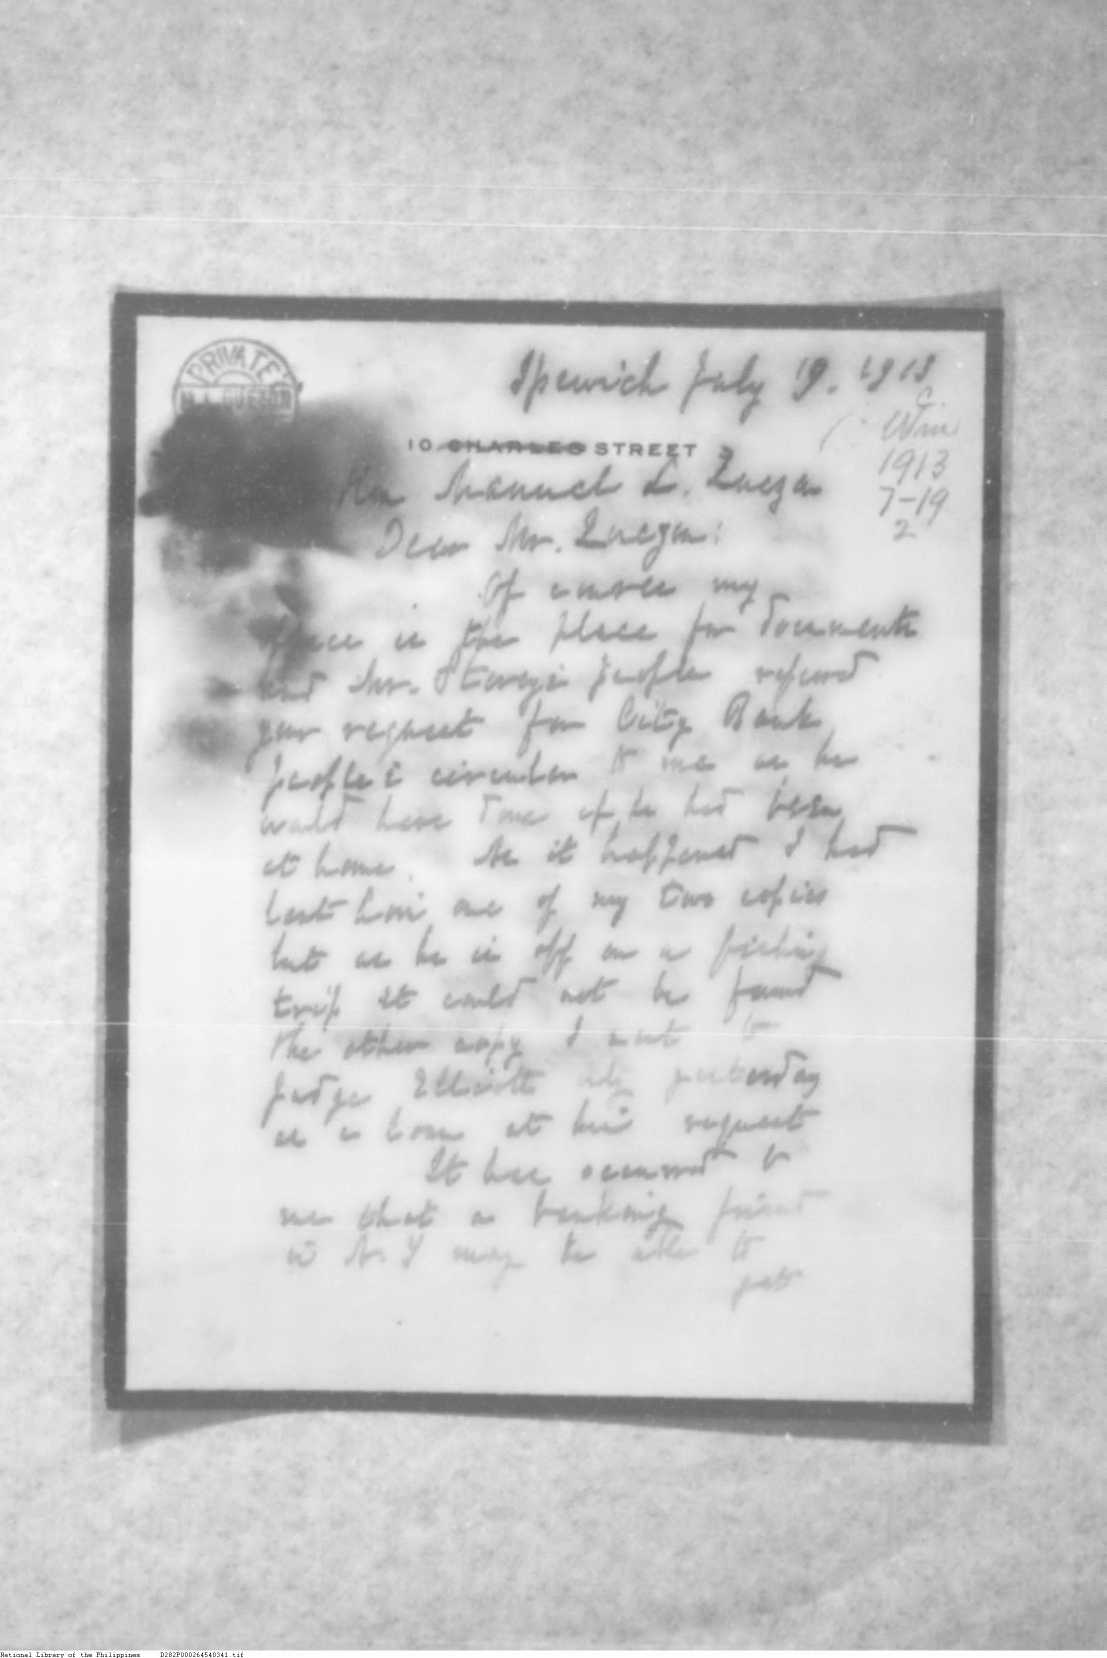 Ipswich July 19. 1913
PRIVATE
10 CHARLES STREET
C.
Win
1913
7-19
2
Hon Manuel L. Quezon
Dear Mr. Quezon:
Of course my
office is the place for documents
and Mr. Storey's people referred
your request for City Bank
people's circular to me as he
would have done if he had been
at home. As it happened I had
lent him one of my two copies
but as he is off on a fishing
trip it could not be found
The other copy I sent to
Judge Elliott only yesterday
as a loan at his request
It has occurred to
me that a banking friend
in N.Y may be able to
get
National Library of the Philippines D282P000264540341.tif